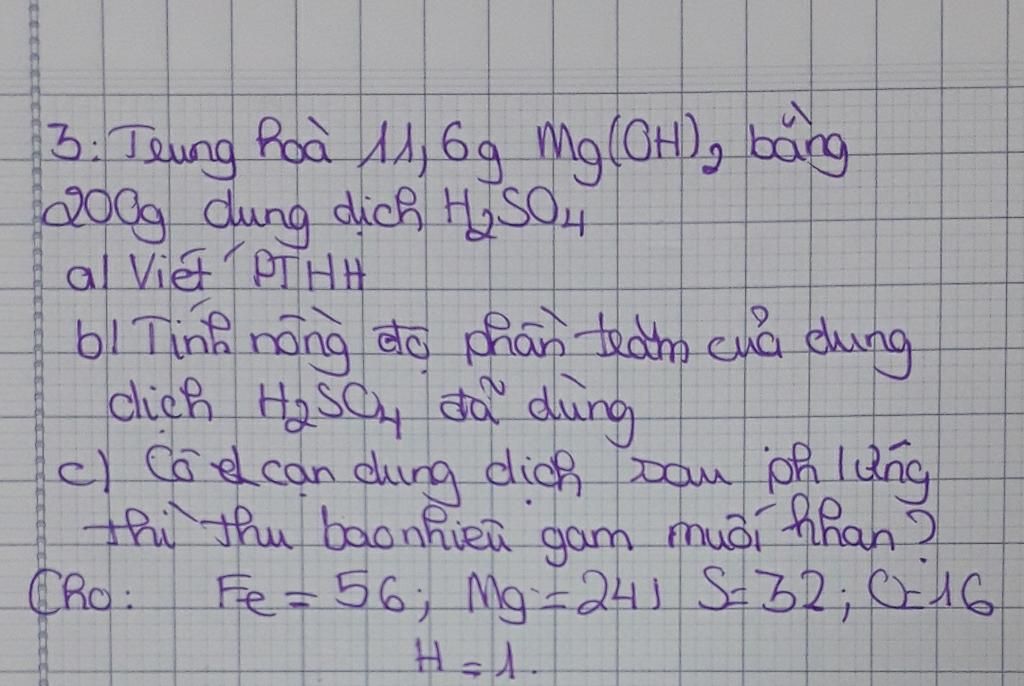 3: Trung hoà 11,6g Mg(OH)₂ bằng
200g dung dịch H₂SO₄
a) Viết PTHH
b) Tính nồng độ phần trăm của dung
dịch H₂SO₄ đã dùng
c) Cô cạn dung dịch sau ph ứng
thì thu bao nhiêu gam muối khan?
Cho: Fe = 56; Mg = 24; S = 32; O = 16
H = 1.